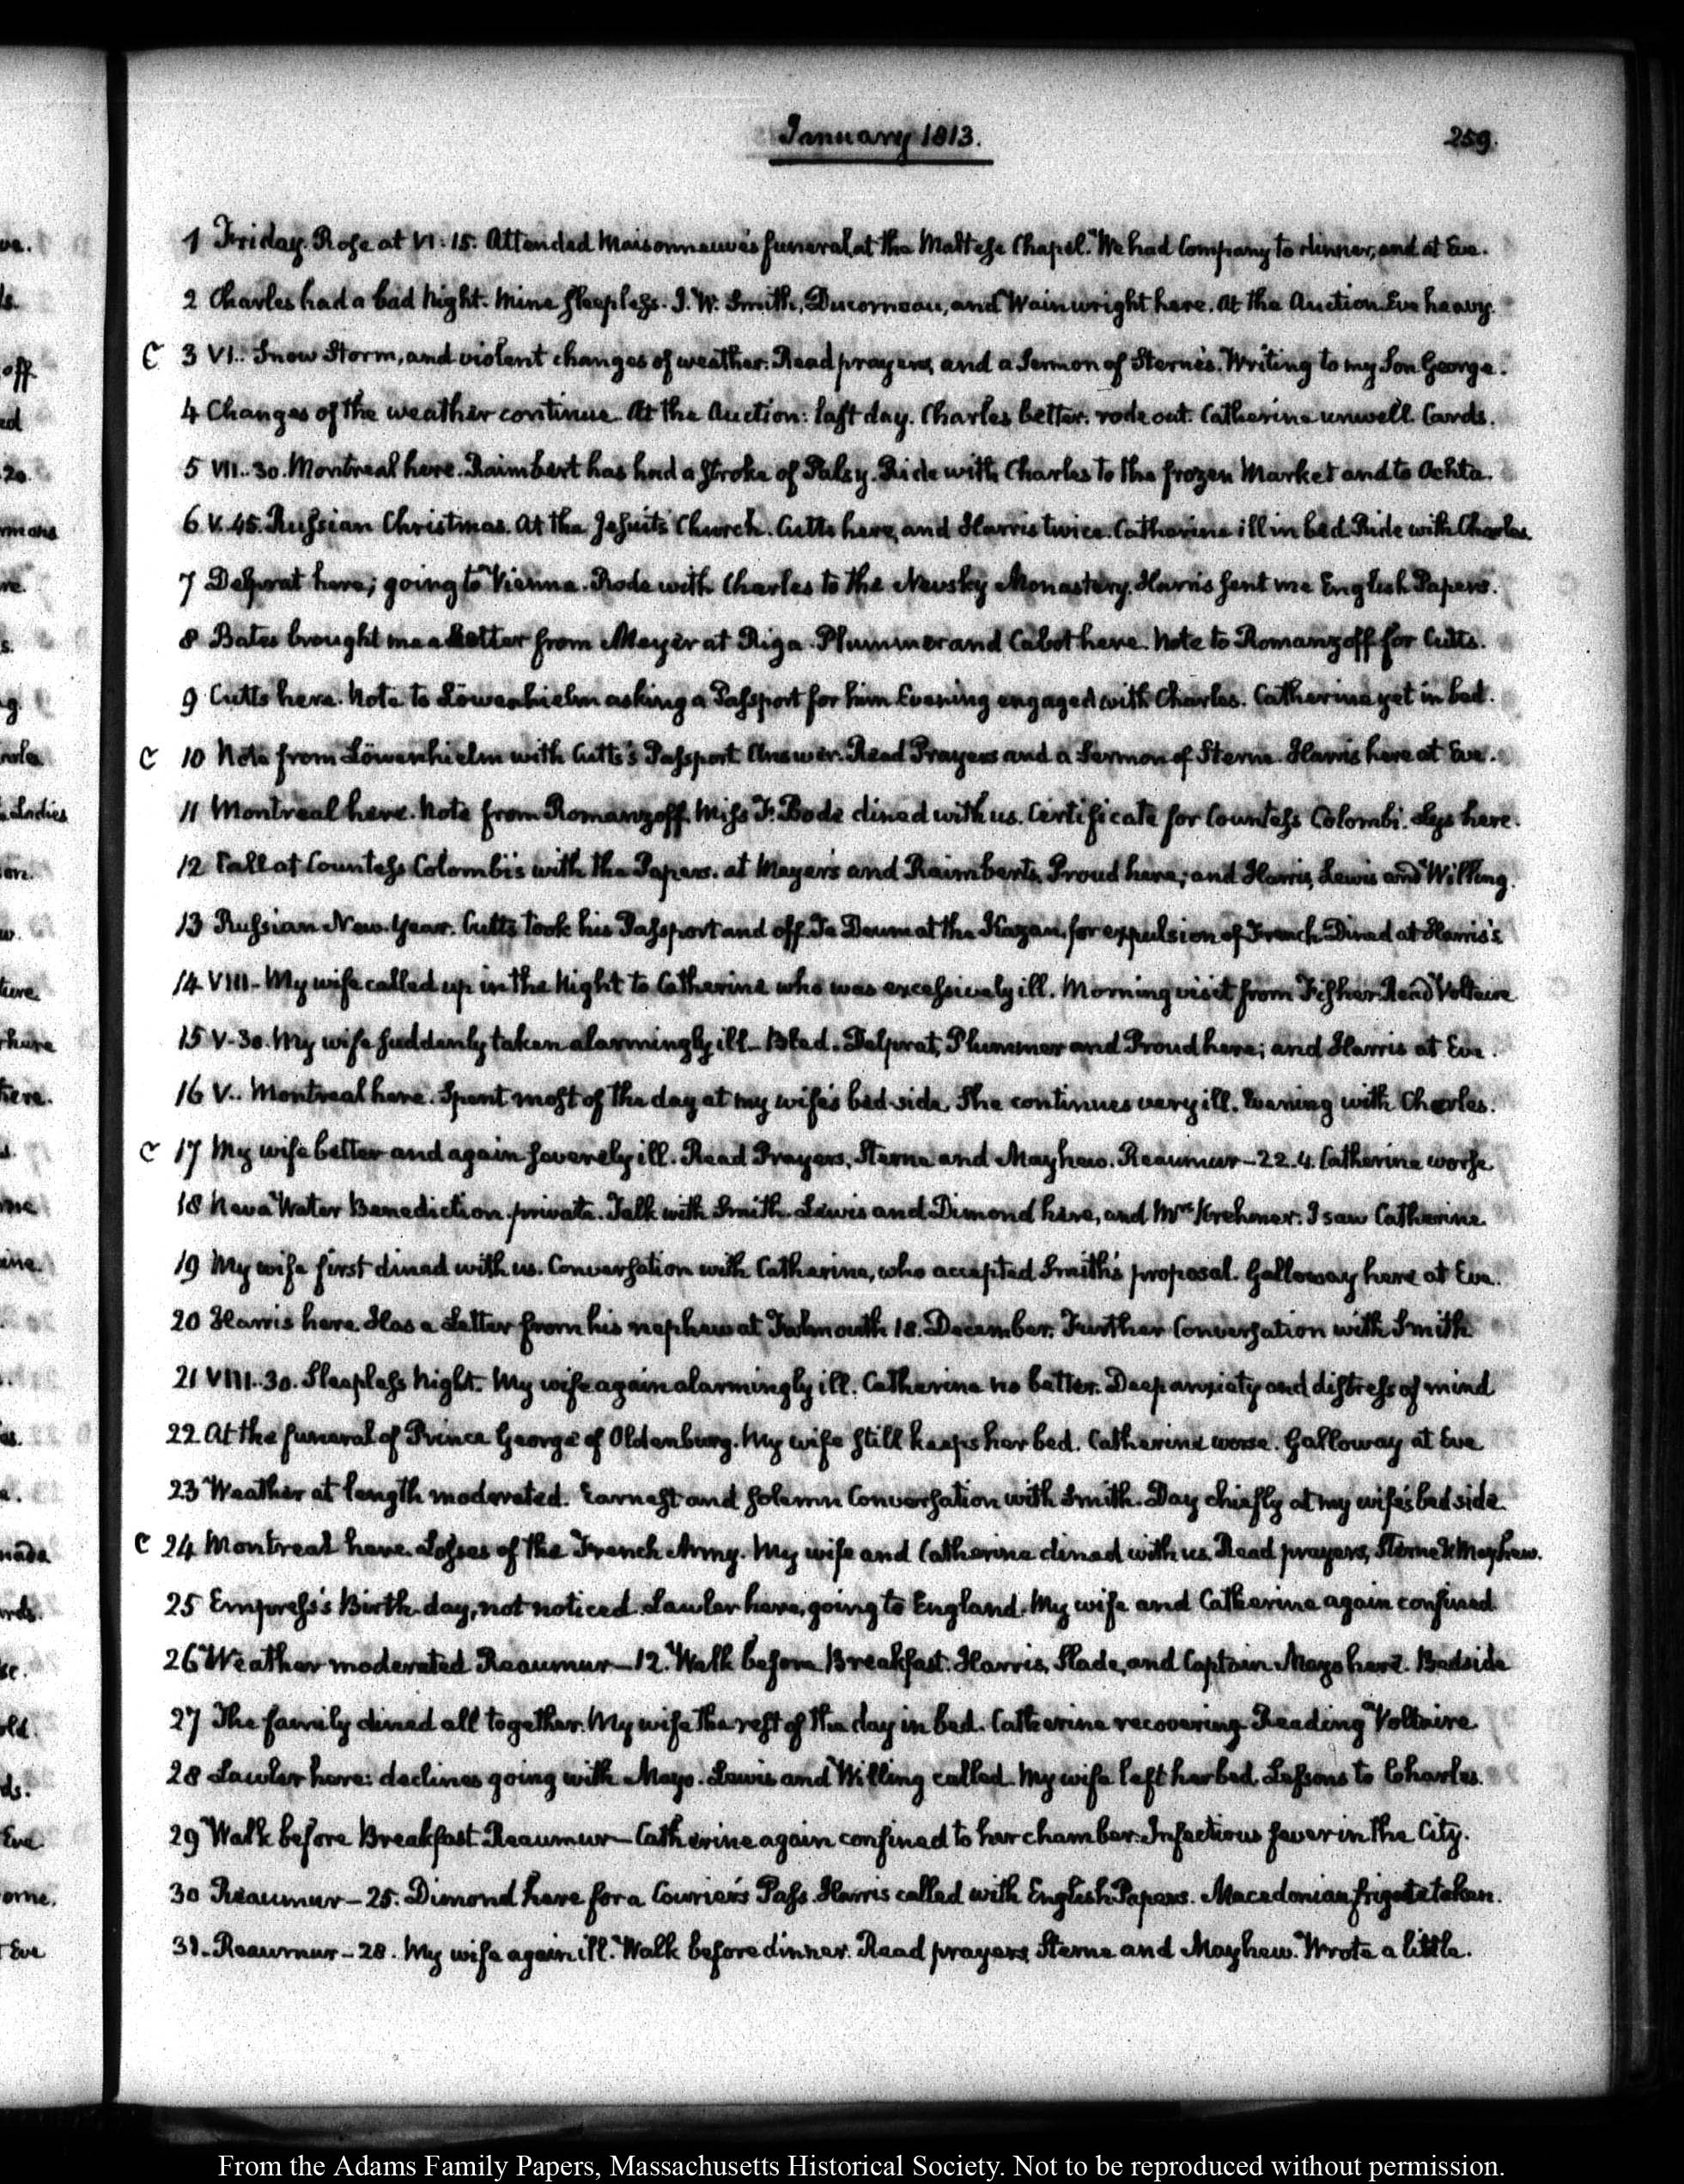 January 1813.
259.
1 Friday. Rose at VI:15. Attended Maisonneuve's funeral, at the Maltese Chapel. We had Company to dinner, and at Eve.
2 Charles had a bad Night. Mine sleepless. J. W. Smith, Ducorneau, and Wainwright here. At the Auction. Eve heavy.
C 3 VI.. Snow Storm, and violent changes of weather. Read prayers, and a Sermon of Sterne's. Writing to my Son George.
4 Changes of the weather continue. At the Auction: last day. Charles better: rode out. Catherine unwell. Cards.
5 VII..30. Montreal here. Raimbert has had a stroke of Palsy. Ride with Charles to the frozen Market and to Ochta.
6 V.45. Russian Christmas. At the Jesuits Church. Cutts here, and Harris twice. Catherine ill in bed. Ride with Charles.
7 Delprat here; going to Vienna. Rode with Charles to the Nevsky Monastery. Harris sent me English Papers.
8 Bates brought me a Letter from Meyer at Riga. Plummer and Cabot here. Note to Romanzoff for Cutts.
9 Cutts here. Note to Löwenhielm asking a Passport for him. Evening engaged with Charles. Catherine yet in bed.
C 10 Note from Löwenhielm with Cutts's Passport. Answer. Read Prayers and a Sermon of Sterne. Harris here at Eve.
11 Montreal here. Note from Romanzoff. Miss F. Bode dined with us. Certificate for Countess Colombi. Lys here.
12 Call at Countess Colombi's with the Papers. at Meyer's and Raimbert's. Proud here; and Harris, Lewis and Willing.
13 Russian New-Year. Cutts took his Passport and off. Te Deum at the Kazan, for expulsion of French. Dined at Harris's
14 VIII- My wife called up in the Night to Catherine who was excessively ill. Morning visit from Fisher. Read Voltaire
15 V-30. My wife suddenly taken alarmingly ill- Bled. Delprat, Plummer and Proud here; and Harris at Eve.
16 V.. Montreal here. Spent most of the day at my wife's bed-side. She continues very ill. Evening with Charles.
C 17 My wife better and again severely ill. Read Prayers, Sterne and Mayhew. Reaumur-22.4. Catherine worse
18 Neva Water Benediction private. Talk with Smith. Lewis and Dimond here, and Mrs. Krehmer. I saw Catherine.
19 My wife first dined with us. Conversation with Catherine, who accepted Smith's proposal. Galloway here at Eve.
20 Harris here. Has a Letter from his nephew at Falmouth 18. December. Further Conversation with Smith
21 VIII..30. Sleepless Night. My wife again alarmingly ill. Catherine no better. Deep anxiety and distress of mind
22 At the funeral of Prince George of Oldenburg. My wife still keeps her bed. Catherine worse. Galloway at Eve
23 Weather at length moderated. Earnest and solemn Conversation with Smith. Day chiefly at my wife's bed side.
C 24 Montreal here. Losses of the French Army. My wife and Catherine dined with us. Read prayers, Sterne & Mayhew.
25 Empress's Birth-day, not noticed. Lawler here, going to England. My wife and Catherine again confined
26 Weather moderated Reaumur-12. Walk before Breakfast. Harris, Slade, and Captain Mayo here. Bedside
27 The family dined all together. My wife the rest of the day in bed. Catherine recovering. Reading Voltaire
28 Lawler here: declines going with Mayo. Lewis and Willing called. My wife left her bed. Lessons to Charles.
29 Walk before Breakfast. Reaumur- Catherine again confined to her chamber. Infectious fever in the City.
30 Reaumur-25. Dimond here for a Courier's Pass. Harris called with English Papers. Macedonian frigate taken.
31. Reaumur-28. My wife again ill. Walk before dinner. Read prayers, Sterne and Mayhew. Wrote a little.
From the Adams Family Papers, Massachusetts Historical Society. Not to be reproduced without permission.